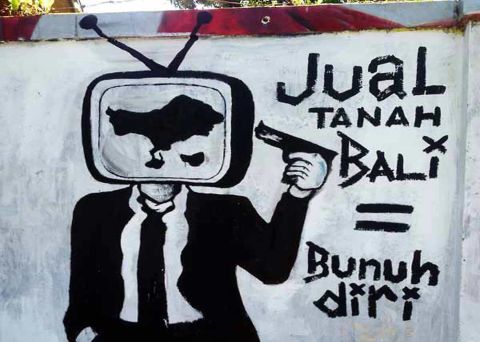 JUAL
TANAH
BALi
=
Bunuh
diri